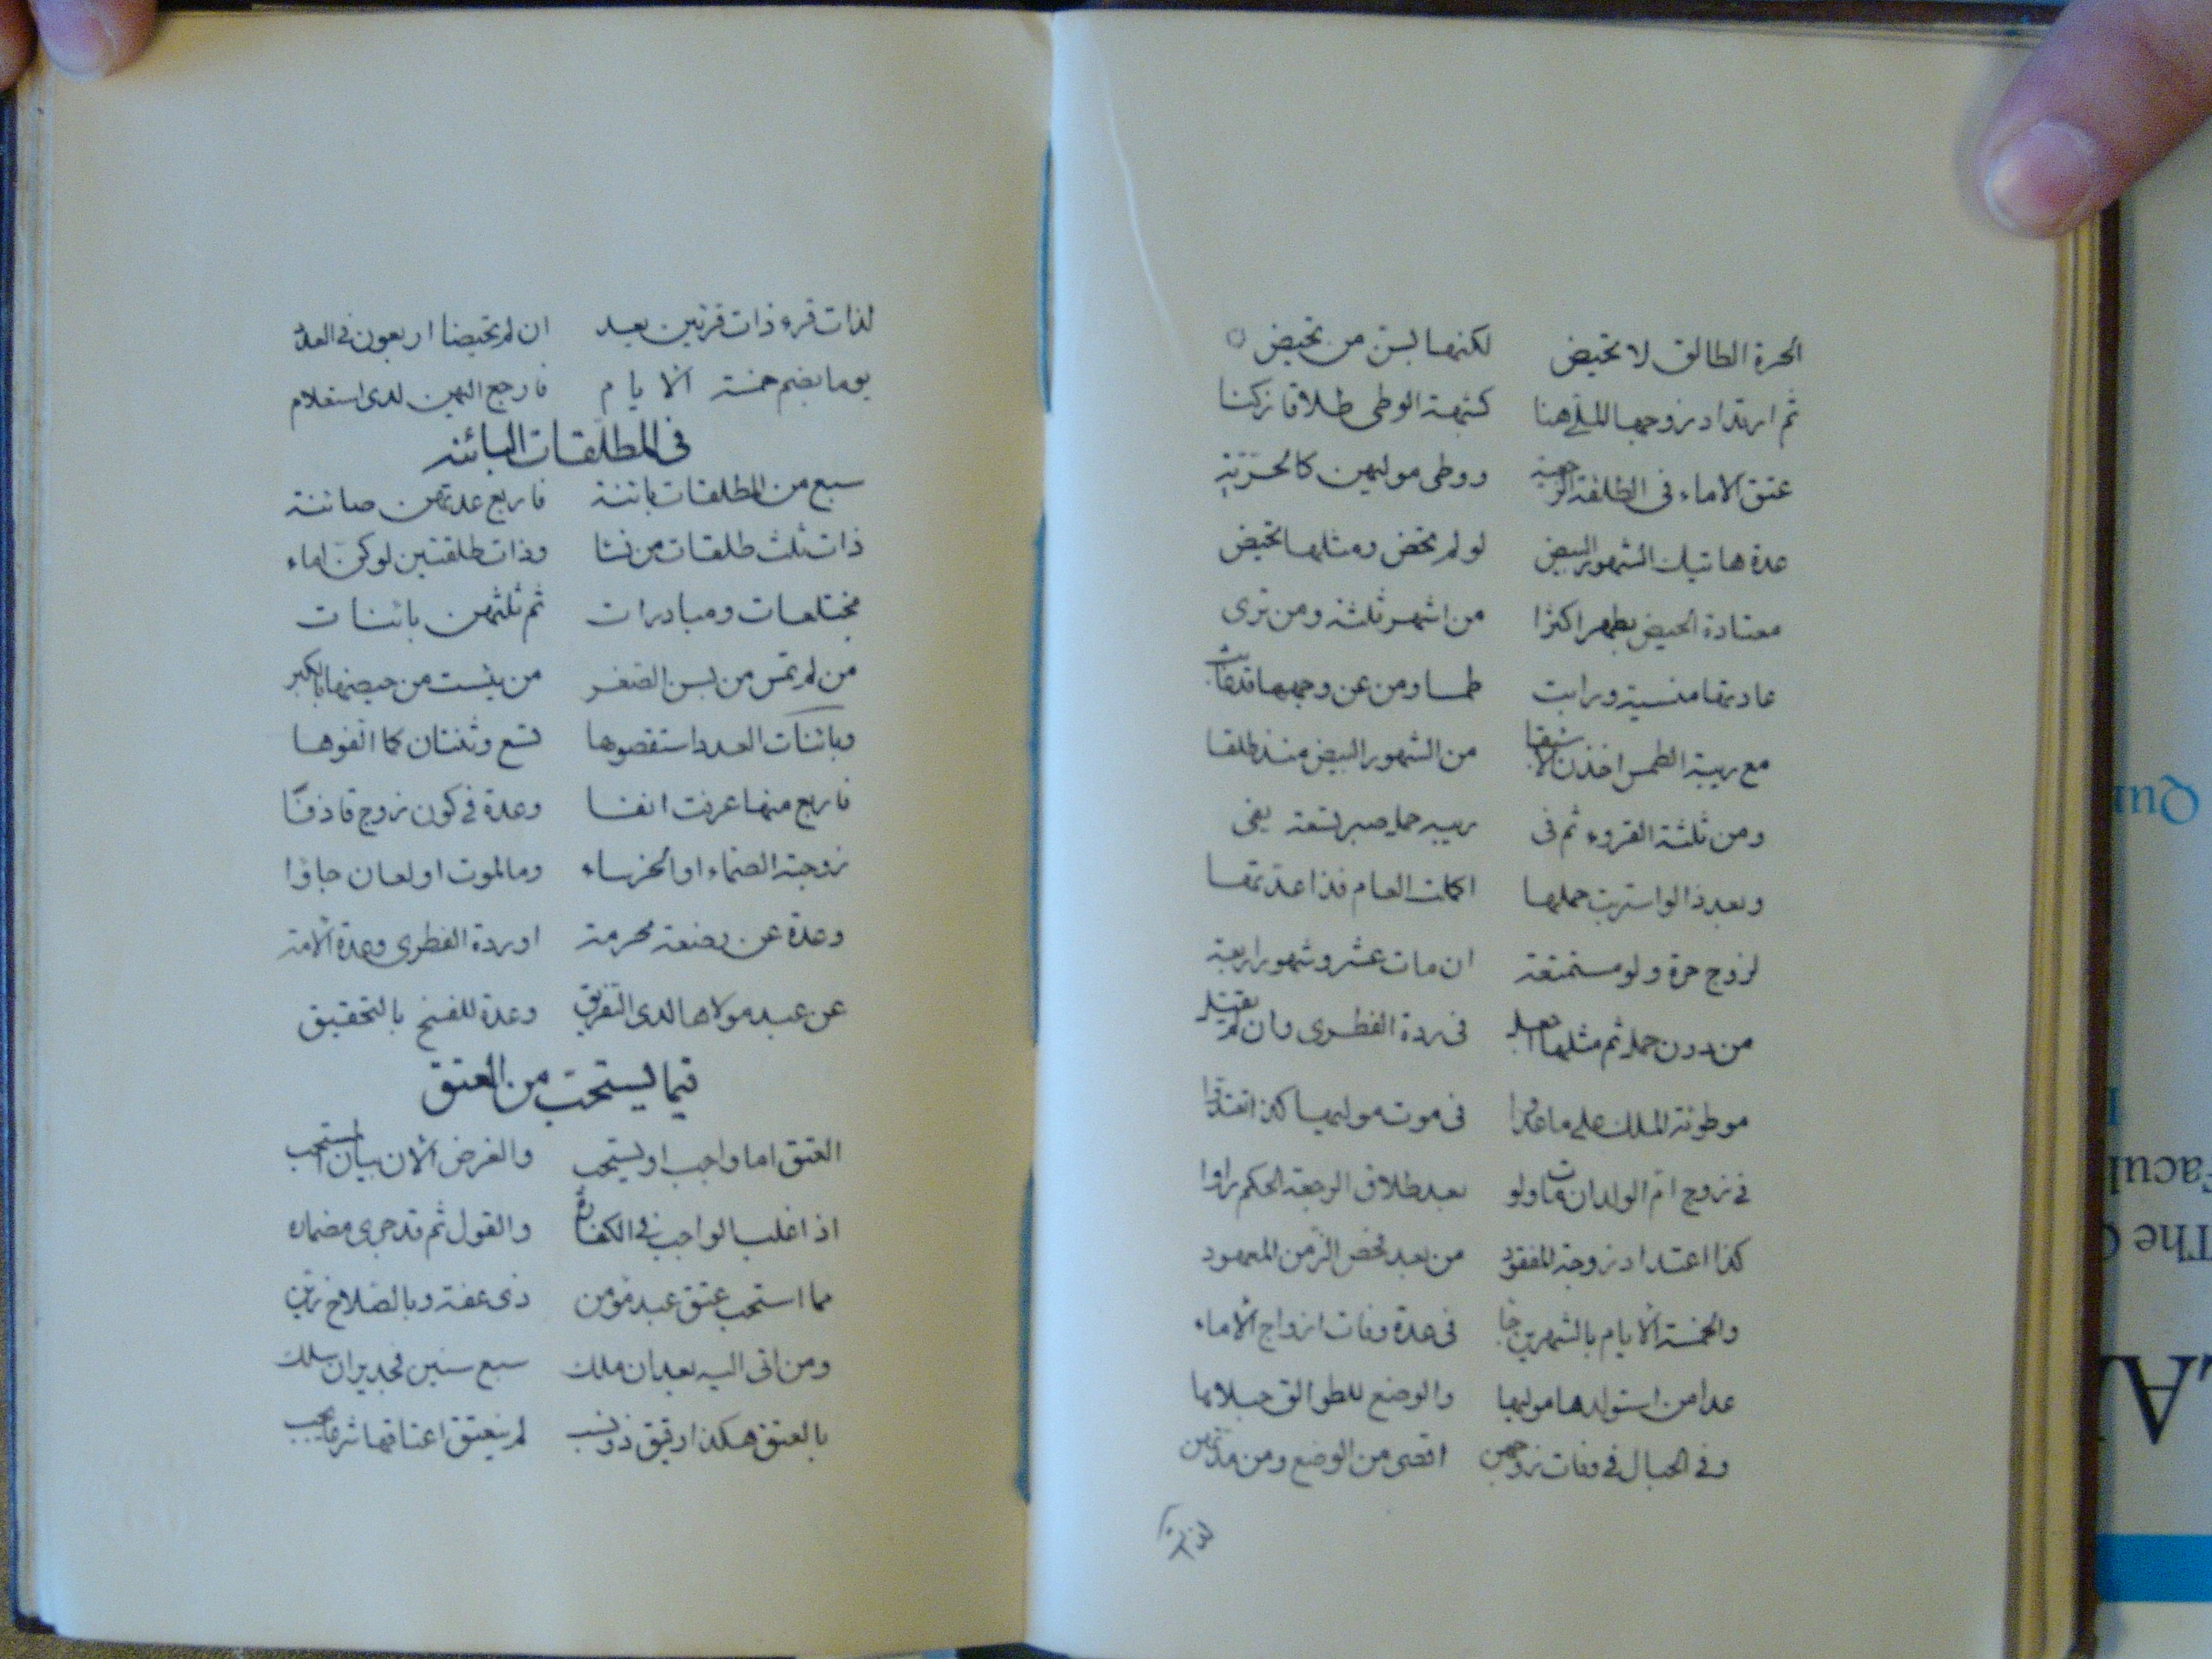 الحرة الطالق لا تحيض لكنها بسن من تحيض
ثم ارتداد زوجها الملي هنا كشبهة الوطى طلاقا زكنا
عتق الاماء فى الطلقة الرجعية ووطى موليهن كالحرية
عدة هاتيك الشهور البيض لو لم تحض ومثلها تحيض
معتادة الحيض بطهر اكثرا من اشهر ثلثة ومن ترى
عادتها منسية ورابت طمسا ومن عن وجهها قد غابت
مع ريبة الطمس اخذن الاسبقا من الشهور البيض منذ طلقا
ومن ثلثة القروء ثم فى ريبه حمل صبر تسعة يفى
وبعد ذا لو استريب حملها اكملت العام فذا عدتها
لزوج حرة ولو مستمتعة ان مات عشر وشهور اربعة
من دون حمل ثم مثلها فى ردة الفطرى وان لم يقتل
موطوئة الملك على ما فى موت موليها كذا
فى زوج ام الولد ان مات ولو بعد طلاق الرجعة الحكم راوا
كذا اعتداد زوجة المفقود من بعد فحص الزمن المعهود
والخمسة الايام بالشهرين جا فى عدة وفات ازواج الاماء
عدا من استولدها موليها والوضع للطوالق حبلا بها
وفى الحبال فى وفات زوجهن اقصى من الوضع ومن مدتهن
لذات
لذات قرء ذات قرئين يعد ان لم تحيضا اربعون فى العدد
يوما بضم خمسة الايام فارجع اليهن لدى استعلام
فى المطلقات البائنه
سبع من المطلقات بائنة فاربع عدتهن صائنة
ذات ثلث طلقات من نسا وذات طلقتين لو كن اماء
مختلعات ومبادرات ثم ثلثهن بائنات
من لم تمس من بسن الصغر من يئست من حيضها بالكبر
وبائنات العدد استقصوها تسع وثنتان كما الفوها
فاربع منها عرفت انفا وعدة فى كون زوج قاذفا
زوجته الصماء او الخرساء وما لموت او لعان جاؤا
وعدة عن بضعة محرمة او ردة الفطرى وعدة الامة
عن عبد مولاها لدى التفريق وعدة للفسخ بالتحقيق
فيما يستحب من العتق
العتق اما واجب او يستحب والغرض الان بيان المستحب
اذ اغلب الواجب فى الكفارة والقول ثم قد جرى مضماره
مما استحب عتق عبد مؤمن ذى عفة وبالصلاح زين
ومن اتى اليه بعد ان ملك سبع سنين فجدير ان سلك
بالعتق هكذا رقيق ذو نسب لم ينعتق اعتاقها شرعا يجب